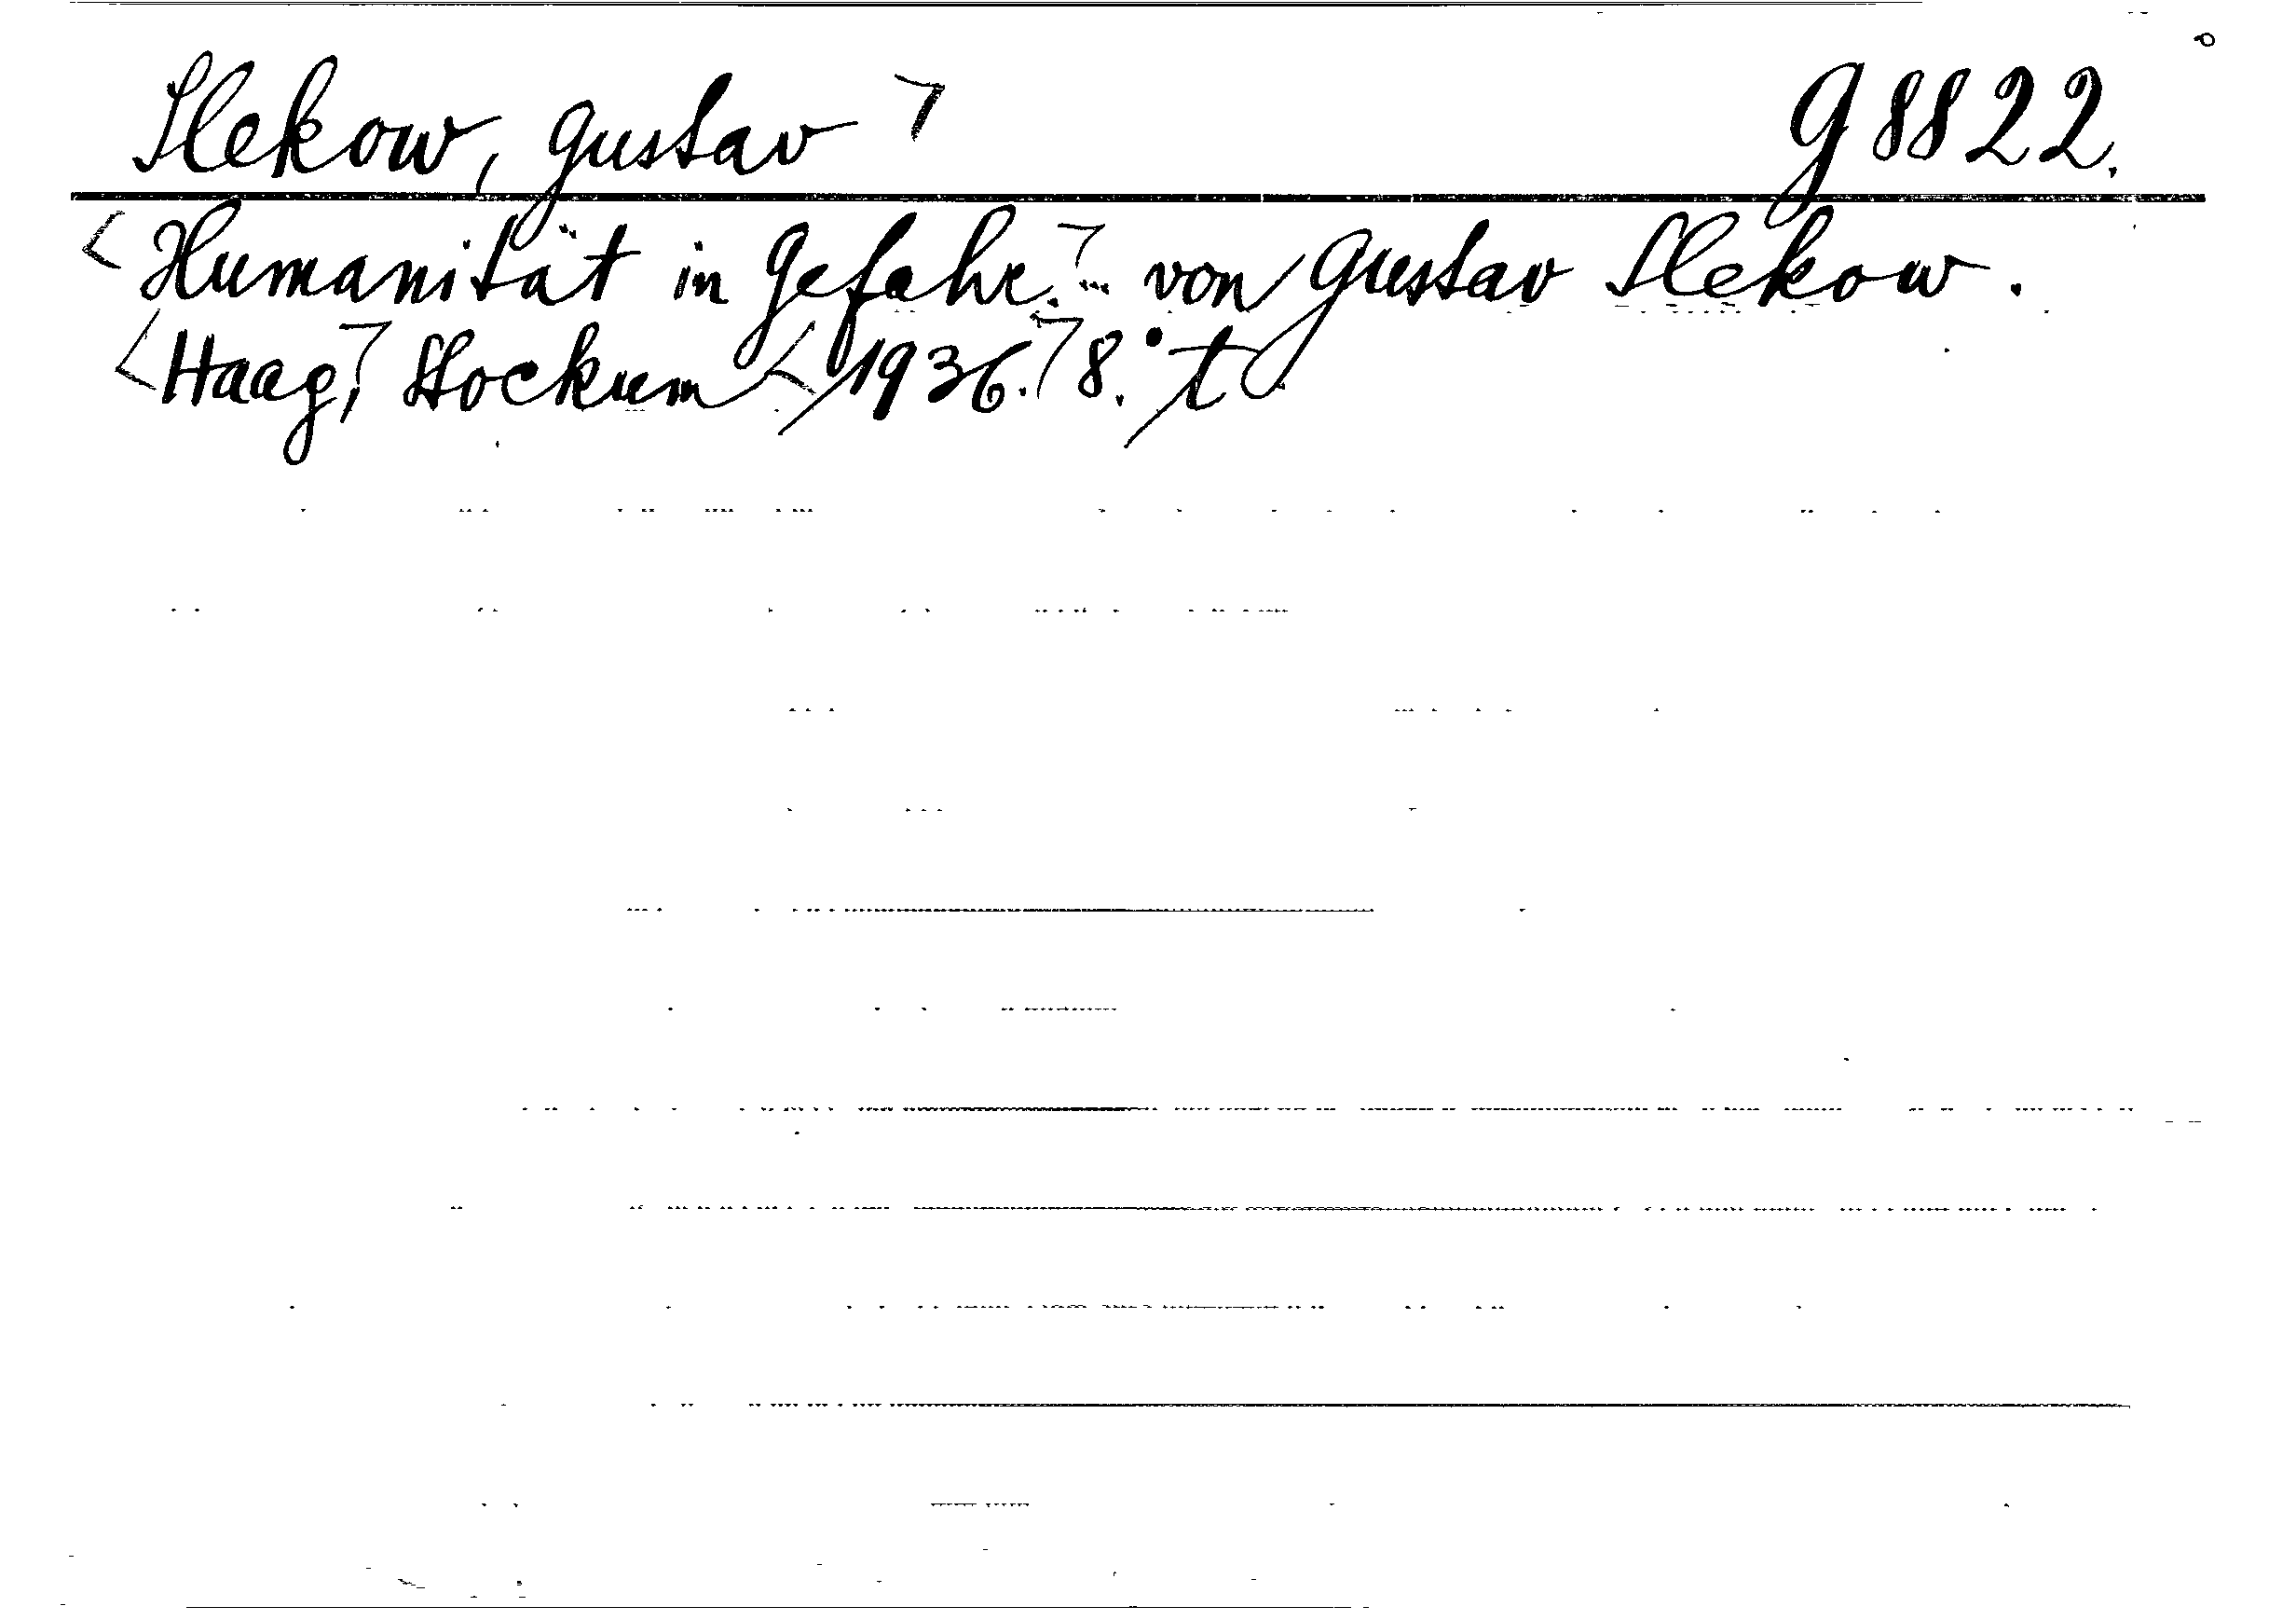 Slekow, Gustav G 8822.
Humanität in Gefahr. ... von Gustav Slekow.
Haag, Stockum 1936. 8.° t